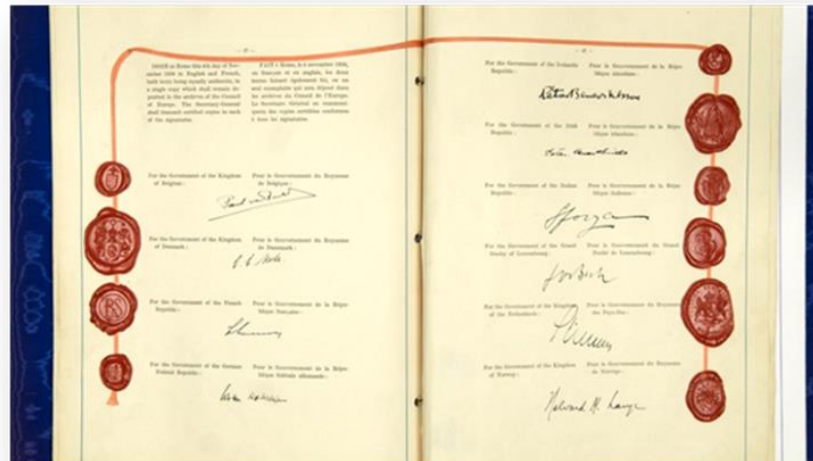 DONE at Rome this 4th day of Nov-
ember 1950 in English and French,
both texts being equally authentic, in
a single copy which shall remain de-
posited in the archives of the Council
of Europe. The Secretary-General
shall transmit certified copies to each
of the signatories.
FAIT à Rome, le 4 novembre 1950,
en français et en anglais, les deux
textes faisant également foi, en un
seul exemplaire qui sera déposé dans
les archives du Conseil de l'Europe.
Le Secrétaire Général en communi-
quera des copies certifiées conformes
à tous les signataires.
For the Government of the Kingdom
of Belgium :
Pour le Gouvernement du Royaume
de Belgique :
For the Government of the Kingdom
of Denmark :
Pour le Gouvernement du Royaume
de Danemark :
For the Government of the French
Republic :
Pour le Gouvernement de la Répu-
blique française :
For the Government of the German
Federal Republic :
Pour le Gouvernement de la Répu-
blique fédérale allemande :
For the Government of the Icelandic
Republic :
Pour le Gouvernement de la Répu-
blique islandaise :
For the Government of the Irish
Republic :
Pour le Gouvernement de la Répu-
blique irlandaise :
For the Government of the Italian
Republic :
Pour le Gouvernement de la Répu-
blique italienne :
Sforza
For the Government of the Grand
Duchy of Luxembourg :
Pour le Gouvernement du Grand
Duché de Luxembourg :
Jos Bech
For the Government of the Kingdom
of the Netherlands :
Pour le Gouvernement du Royaume
des Pays-Bas :
For the Government of the Kingdom
of Norway :
Pour le Gouvernement du Royaume
de Norvège :
Halvard M. Lange